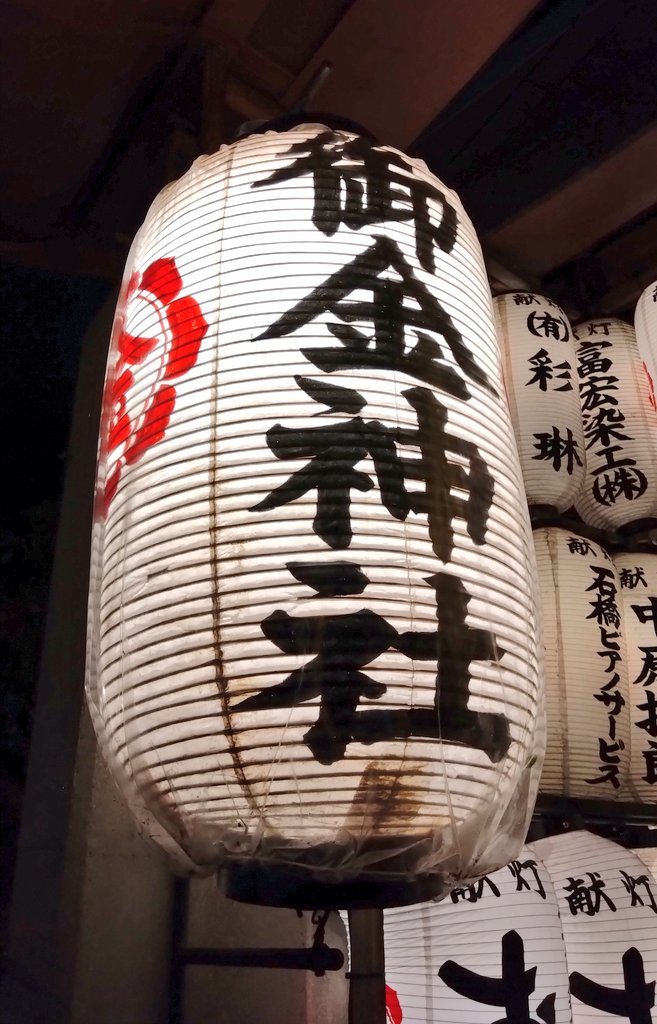 御金神社
献灯
(有)彩琳
灯
富宏染工(株)
献灯
石橋ピアノサービス
献
献灯
献灯